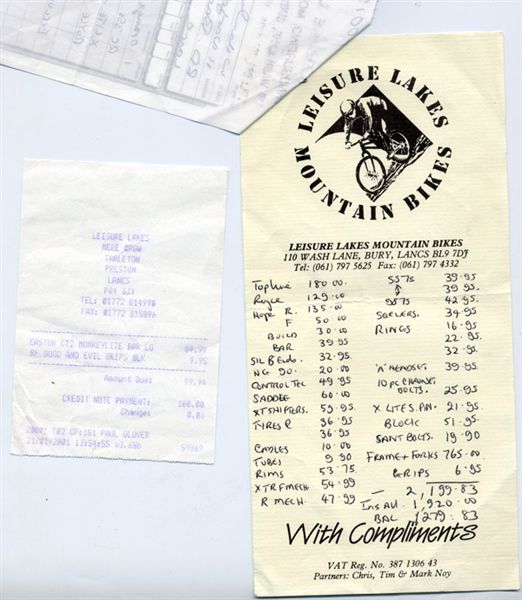 LEISURE LAKES
MOUNTAIN BIKES
LEISURE LAKES MOUNTAIN BIKES
110 WASH LANE, BURY, LANCS BL9 7DJ
Tel: (061) 797 5625 Fax: (061) 797 4332
Topline 180 00. SS7S 39.95
Royce 129.00 39.95
Hope R. 135.00 95 7S 42.95
F 50.00 SPEELERS. 34.95
BUILD 30.00 RINGS 16.95
BAR 39.95 22.95
SIL B Endo. 32.95. 32.95
NG 90. 20.00 'A' HEADSET. 39.95
CONTROL TEC 49.95 10 PC CHAINSET
SADDLE 60.00 BOLTS. 25.95
XT SHIFTERS. 59.95 X LITE S.PIN. 21.95
TYRES R 36.95 BLOCK 51.95
36.95 SANT BOLTS. 19.90
CABLES 10.00 FRAME + FORKS 765.00
TUBES 9 90 GRIPS 6.95
RIMS 53.75 — 2,199.83
XTR F MECH. 54.99 Ins All. 1,920.00
R MECH. 47.99 BAL £279.83
With Compliments
VAT Reg. No. 387 1306 43
Partners: Chris, Tim & Mark Noy
LEISURE LAKES
MERE BROW
TARLETON
PRESTON
LANCS
PR4 6JX
TEL: 01772 814990
FAX: 01772 815896
EASTON CT2 MONKEYLITE BAR LO 89.99
RF GOOD AND EVIL GRIPS BLK 9.95
Amount Due: 99.94
CREDIT NOTE PAYMENT: 100.00
Change: 0.06
20001 T02 OP:151 PAUL GLOVER
21/01/2001 13:54:55 v3.65b 59969